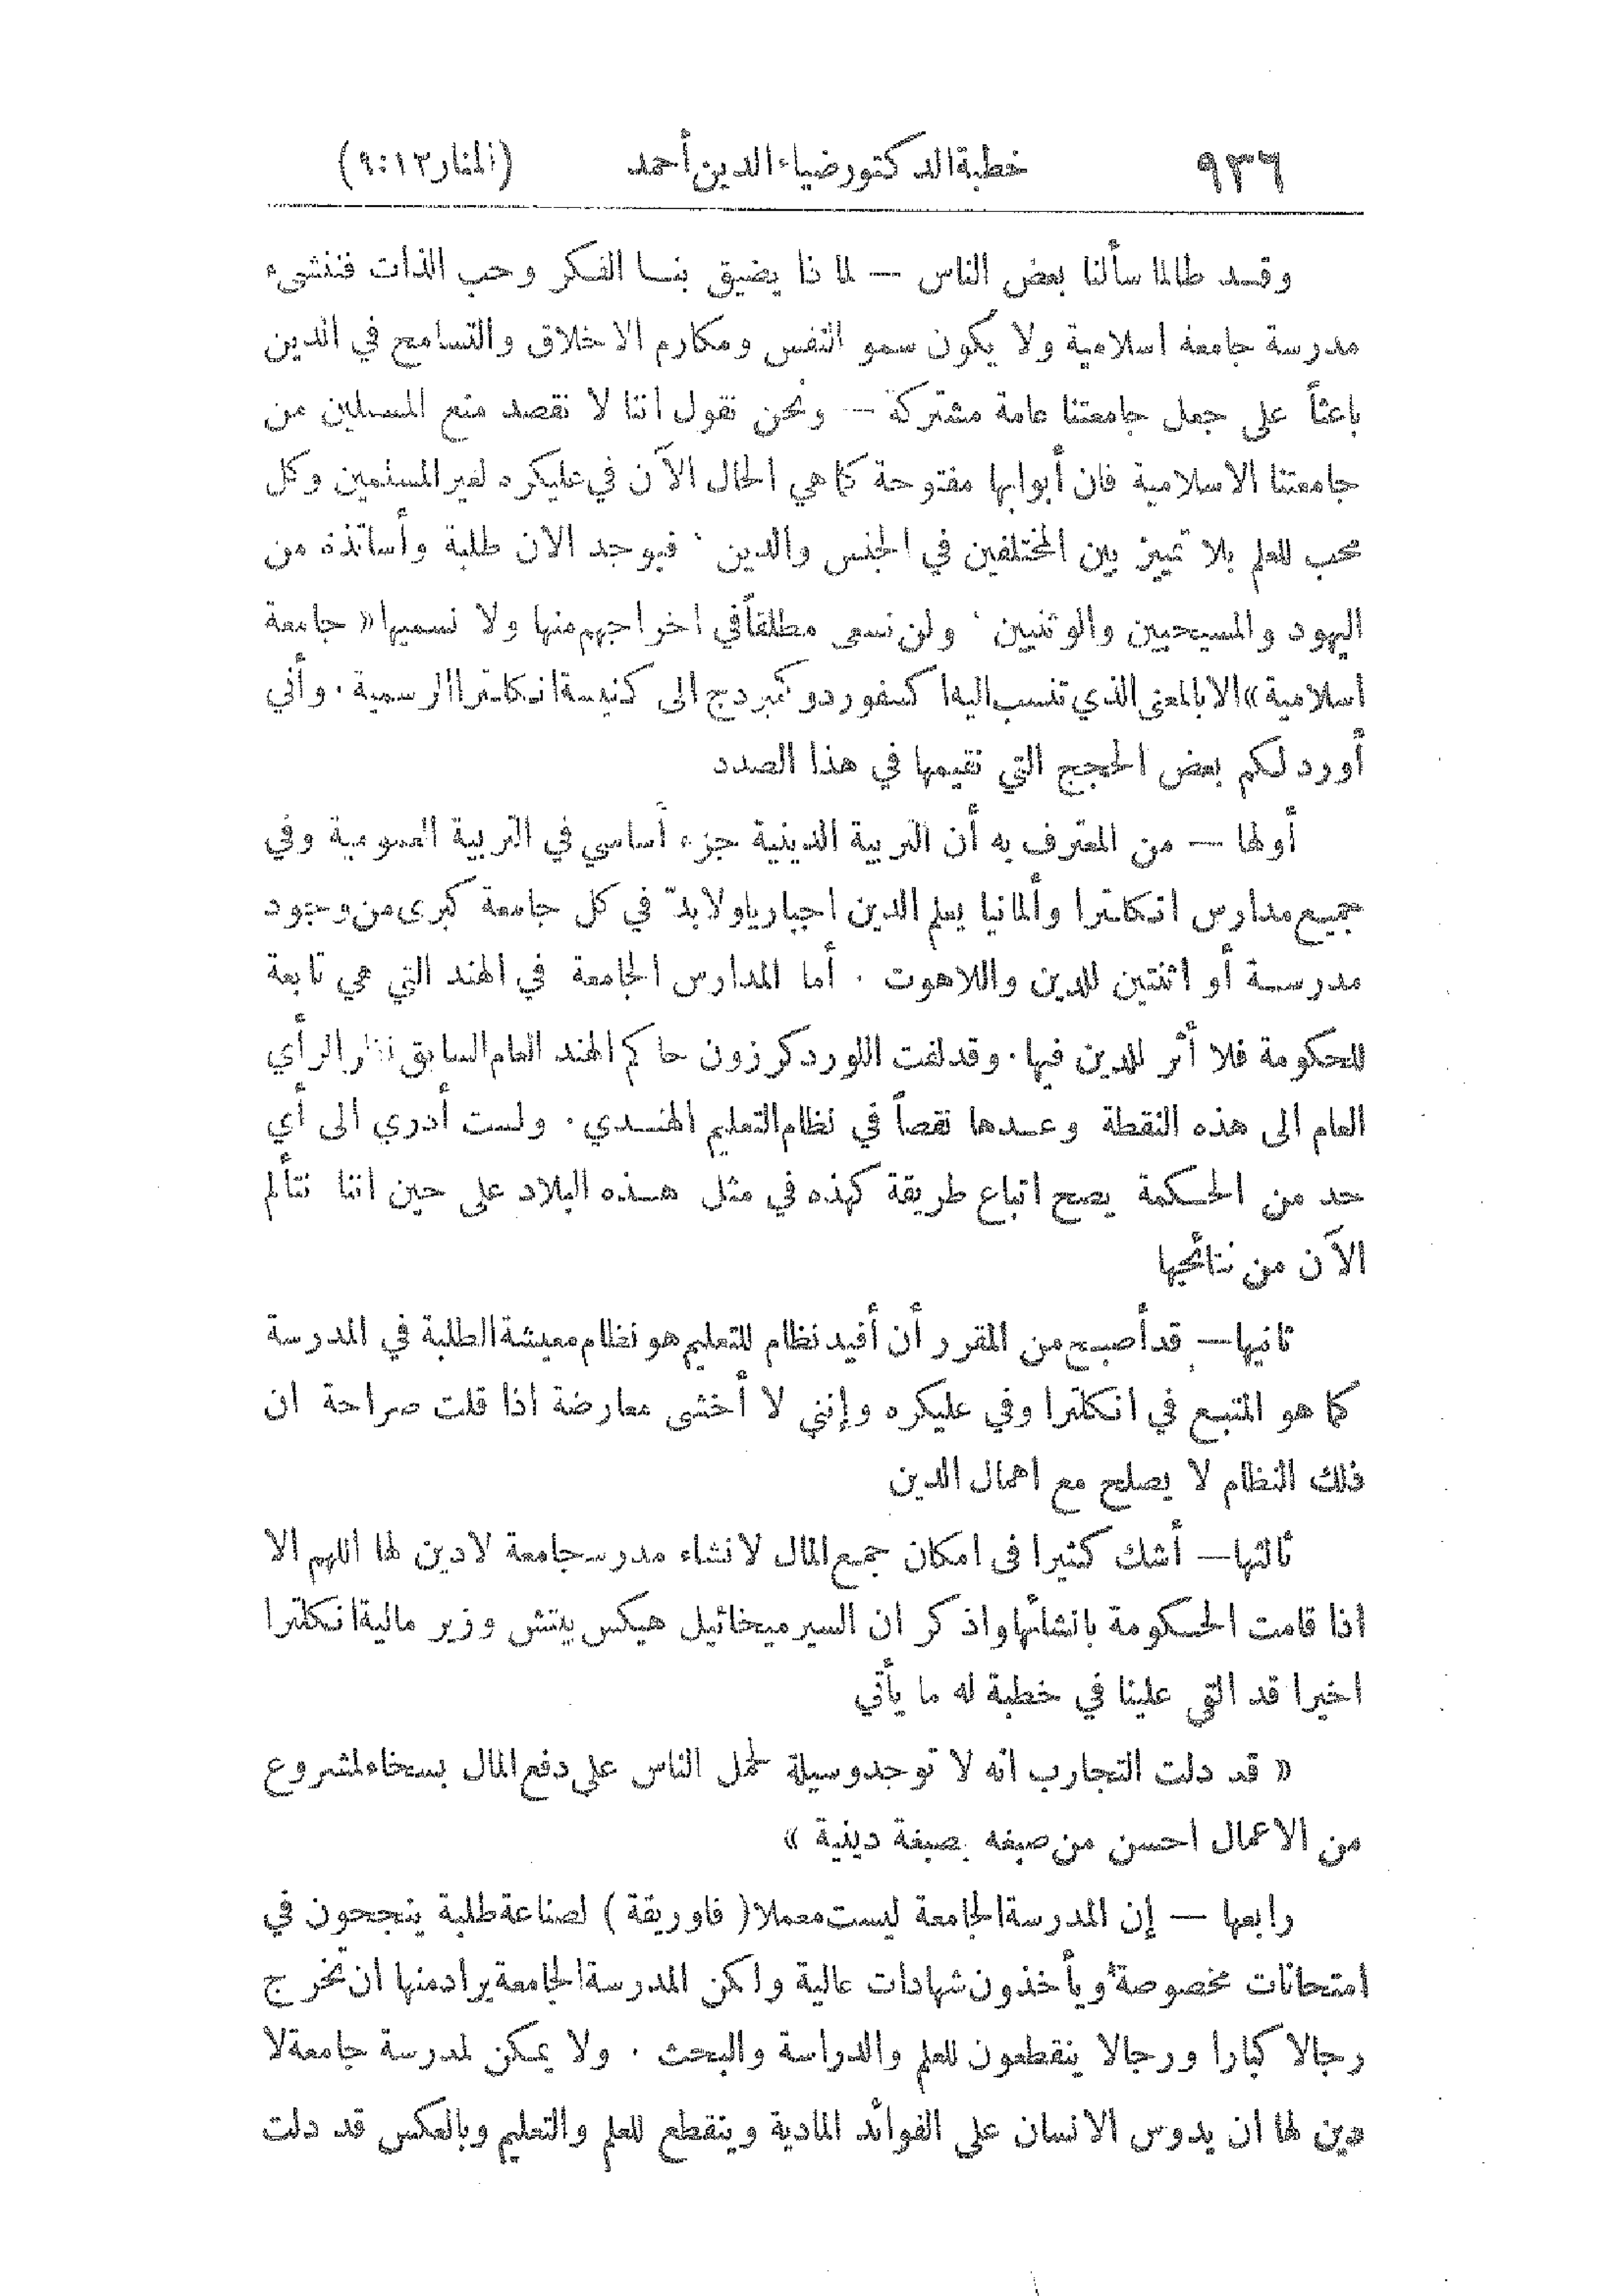 ٩٣٦ خطبة الدكتور ضياء الدين أحمد (المنار ١٣:٩)
وقد طالما سألنا بعض الناس — لماذا يضيق بنا الفكر وحب الذات فننشىء
مدرسة جامعة اسلامية ولا يكون سمو النفس ومكارم الاخلاق والتسامح في الدين
باعثاً على جعل جامعتنا عامة مشتركة — ونحن نقول اننا لا نقصد منع المسلمين من
جامعتنا الاسلامية فان أبوابها مفتوحة كما هي الحال الآن في عليكره لغير المسلمين وكل
محب للعلم بلا تمييز بين المختلفين في الجنس والدين ٠ فيوجد الان طلبة وأساتذة من
اليهود والمسيحيين والوثنيين ٠ ولن نسعى مطلقاً في اخراجهم منها ولا نسميها « جامعة
اسلامية » الا بالمعنى الذي تنسب اليه اكسفورد وكمبردج الى كنيسة انكلترا الرسمية ٠ وأني
أورد لكم بعض الحجج التي نقيمها في هذا الصدد
أولها — من المعترف به أن التربية الدينية جزء أساسي في التربية العمومية وفي
جميع مدارس انكلترا وألمانيا يعلم الدين اجباريا ولا بدّ في كل جامعة كبرى من وجود
مدرسة أو اثنتين للدين واللاهوت ٠ أما المدارس الجامعة في الهند التي هي تابعة
للحكومة فلا أثر للدين فيها ٠ وقد لفت اللورد كرزون حاكم الهند العام السابق نظر الرأي
العام الى هذه النقطة وعدها نقصاً في نظام التعليم الهندي ٠ ولست أدري الى أي
حد من الحكمة يصح اتباع طريقة كهذه في مثل هذه البلاد على حين اننا نتألم
الآن من نتائجها
ثانيها — قد أصبح من المقرر أن أفيد نظام للتعليم هو نظام معيشة الطلبة في المدرسة
كما هو المتبع في انكلترا وفي عليكره وإنني لا أخشى معارضة اذا قلت صراحة ان
ذلك النظام لا يصلح مع اهمال الدين
ثالثها — أشك كثيرا فى امكان جمع المال لانشاء مدرسه جامعة لا دين لها اللهم الا
اذا قامت الحكومة بانشائها واذكر ان السير ميخائيل هيكس بيتش وزير مالية انكلترا
اخيرا قد القى علينا في خطبة له ما يأتي
« قد دلت التجارب انه لا توجد وسيلة تحمل الناس على دفع المال بسخاء لمشروع
من الاعمال احسن من صبغه بصبغة دينية »
رابعها — إن المدرسة الجامعة ليست معملا ( فاوريقة ) لصناعة طلبة ينجحون في
امتحانات مخصوصة ويأخذون شهادات عالية ولكن المدرسة الجامعة يراد منها ان تخرج
رجالا كبارا ورجالا ينقطعون للعلم والدراسة والبحث ٠ ولا يمكن لمدرسة جامعة لا
دين لها ان يدوس الانسان على الفوائد المادية وينقطع للعلم والتعليم وبالعكس قد دلت